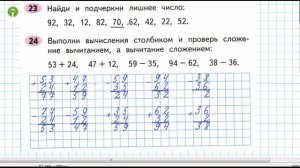 23 Найди и подчеркни лишнее число:
92, 32, 12, 82, 70, 62, 42, 22, 52.
24 Выполни вычисления столбиком и проверь сложе-
ние вычитанием, а вычитание сложением:
53 + 24, 47 + 12, 59 − 35, 94 − 62, 38 − 36.
+53 +47 −59 −94 −38
24 12 35 62 36
77 59 24 32 2
−77 −59 +35 +62 +36
24 12 24 32 2
53 47 59 94 38